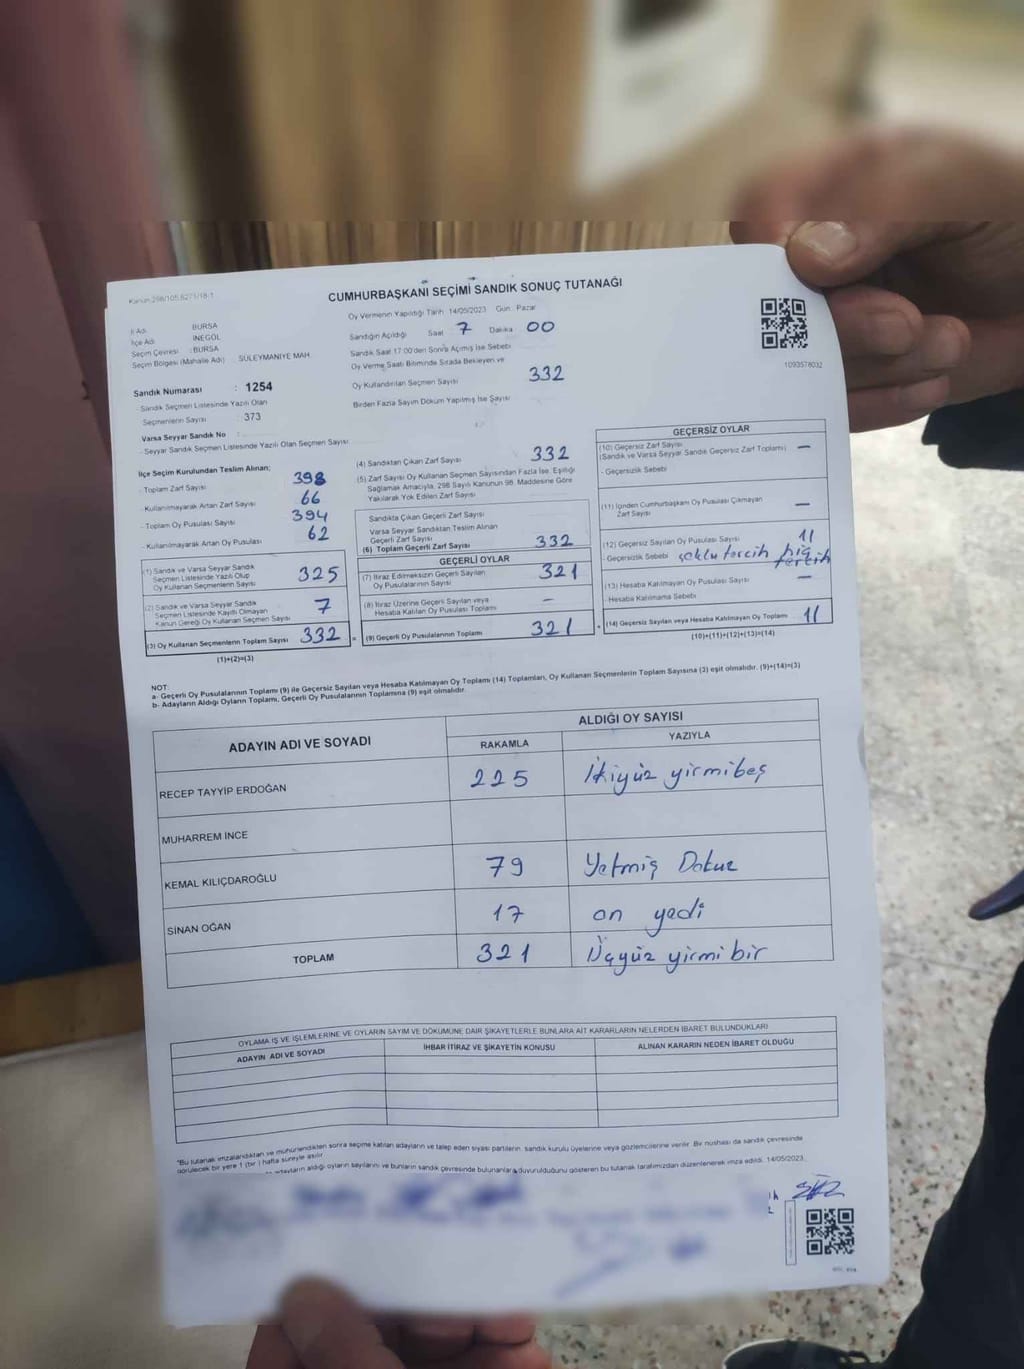 Kanun 298/105,6271/18-1
CUMHURBAŞKANI SEÇİMİ SANDIK SONUÇ TUTANAĞI
İl Adı BURSA
İlçe Adı İNEGÖL
Seçim Çevresi : BURSA
Seçim Bölgesi (Mahalle Adı) : SÜLEYMANİYE MAH.
Sandık Numarası : 1254
- Sandık Seçmen Listesinde Yazılı Olan
Seçmenlerin Sayısı : 373
Varsa Seyyar Sandık No :
- Seyyar Sandık Seçmen Listesinde Yazılı Olan Seçmen Sayısı
Oy Vermenin Yapıldığı Tarih 14/05/2023 Gün Pazar
Sandığın Açıldığı Saat 7 Dakika 00
Sandık Saat 17:00'den Sonra Açılmış İse Sebebi
Oy Verme Saati Bitiminde Sırada Bekleyen ve
Oy Kullandırılan Seçmen Sayısı 332
Birden Fazla Sayım Döküm Yapılmış İse Sayısı
1093578032
İlçe Seçim Kurulundan Teslim Alınan;
- Toplam Zarf Sayısı 398
- Kullanılmayarak Artan Zarf Sayısı 66
- Toplam Oy Pusulası Sayısı 394
- Kullanılmayarak Artan Oy Pusulası 62
(1) Sandık ve Varsa Seyyar Sandık
Seçmen Listesinde Yazılı Olup
Oy Kullanan Seçmenlerin Sayısı 325
(2) Sandık ve Varsa Seyyar Sandık
Seçmen Listesinde Kayıtlı Olmayan
Kanun Gereği Oy Kullanan Seçmen Sayısı 7
(3) Oy Kullanan Seçmenlerin Toplam Sayısı 332 =
(1)+(2)=(3)
(4) Sandıktan Çıkan Zarf Sayısı 332
(5) Zarf Sayısı Oy Kullanan Seçmen Sayısından Fazla İse, Eşitliği
Sağlamak Amacıyla, 298 Sayılı Kanunun 98. Maddesine Göre
Yakılarak Yok Edilen Zarf Sayısı
Sandıkta Çıkan Geçerli Zarf Sayısı
Varsa Seyyar Sandıktan Teslim Alınan
Geçerli Zarf Sayısı
(6) Toplam Geçerli Zarf Sayısı 332
GEÇERLİ OYLAR
(7) İtiraz Edilmeksizin Geçerli Sayılan
Oy Pusulalarının Sayısı 321
(8) İtiraz Üzerine Geçerli Sayılan veya
Hesaba Katılan Oy Pusulası Toplamı -
(9) Geçerli Oy Pusulalarının Toplamı 321 +
GEÇERSİZ OYLAR
(10) Geçersiz Zarf Sayısı
(Sandık ve Varsa Seyyar Sandık Geçersiz Zarf Toplamı) -
- Geçersizlik Sebebi
(11) İçinden Cumhurbaşkanı Oy Pusulası Çıkmayan
Zarf Sayısı -
(12) Geçersiz Sayılan Oy Pusulası Sayısı 11
- Geçersizlik Sebebi çoklu tercih hiç tercih
(13) Hesaba Katılmayan Oy Pusulası Sayısı -
- Hesaba Katılmama Sebebi
(14) Geçersiz Sayılan veya Hesaba Katılmayan Oy Toplamı 11
(10)+(11)+(12)+(13)=(14)
NOT:
a- Geçerli Oy Pusulalarının Toplamı (9) ile Geçersiz Sayılan veya Hesaba Katılmayan Oy Toplamı (14) Toplamları, Oy Kullanan Seçmenlerin Toplam Sayısına (3) eşit olmalıdır. (9)+(14)=(3)
b- Adayların Aldığı Oyların Toplamı, Geçerli Oy Pusulalarının Toplamına (9) eşit olmalıdır.
ADAYIN ADI VE SOYADI ALDIĞI OY SAYISI
RAKAMLA YAZIYLA
RECEP TAYYİP ERDOĞAN 225 İkiyüz yirmibeş
MUHARREM İNCE
KEMAL KILIÇDAROĞLU 79 Yetmiş Dokuz
SİNAN OĞAN 17 on yedi
TOPLAM 321 Üçyüz yirmi bir
OYLAMA İŞ VE İŞLEMLERİNE VE OYLARIN SAYIM VE DÖKÜMÜNE DAİR ŞİKAYETLERLE BUNLARA AİT KARARLARIN NELERDEN İBARET BULUNDUKLARI
ADAYIN ADI VE SOYADI İHBAR İTİRAZ VE ŞİKAYETİN KONUSU ALINAN KARARIN NEDEN İBARET OLDUĞU
"Bu tutanak imzalandıktan ve mühürlendikten sonra seçime katılan adayların ve talep eden siyasi partilerin, sandık kurulu üyelerine veya gözlemcilerine verilir. Bir nüshası da sandık çevresinde
görülecek bir yere 1 (bir) hafta süreyle asılır.
adayların aldığı oyların sayılarını ve bunların sandık çevresinde bulunanlara duyurulduğunu gösteren bu tutanak tarafımızdan düzenlenerek imza edildi. 14/05/2023